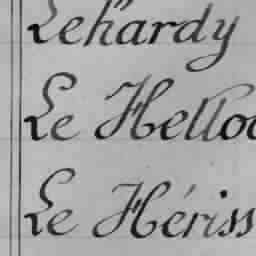 Lehardy
Le Helloc
Le Hériss